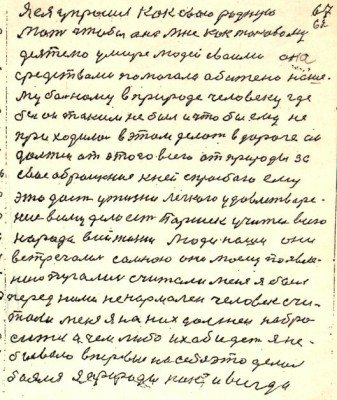 Я ея упросил как свою родную 67
мать чтобы она мне как таковому
детено умире людей своими она
средствами помогала абажено наше
му бажному в природе человеку где
бы он таким не был и что бы ему не
приходилось в этом делать в дороге он
должен от этого всего от природы за
свае обращение к ней спасибо ему
это даст у жизни лёгкого удовлетваре
ние всему дело есть Паршек учитель всего
народа всей жизни Люди наши они
встречались со мною они моему появле
нию пугались считали меня я был
перед ними ненормален человек счи
тали меня я на них должен набро
ситься чем либо их абидеть я не
бывало впервые на себе это делал
боялся я природы как и всегда